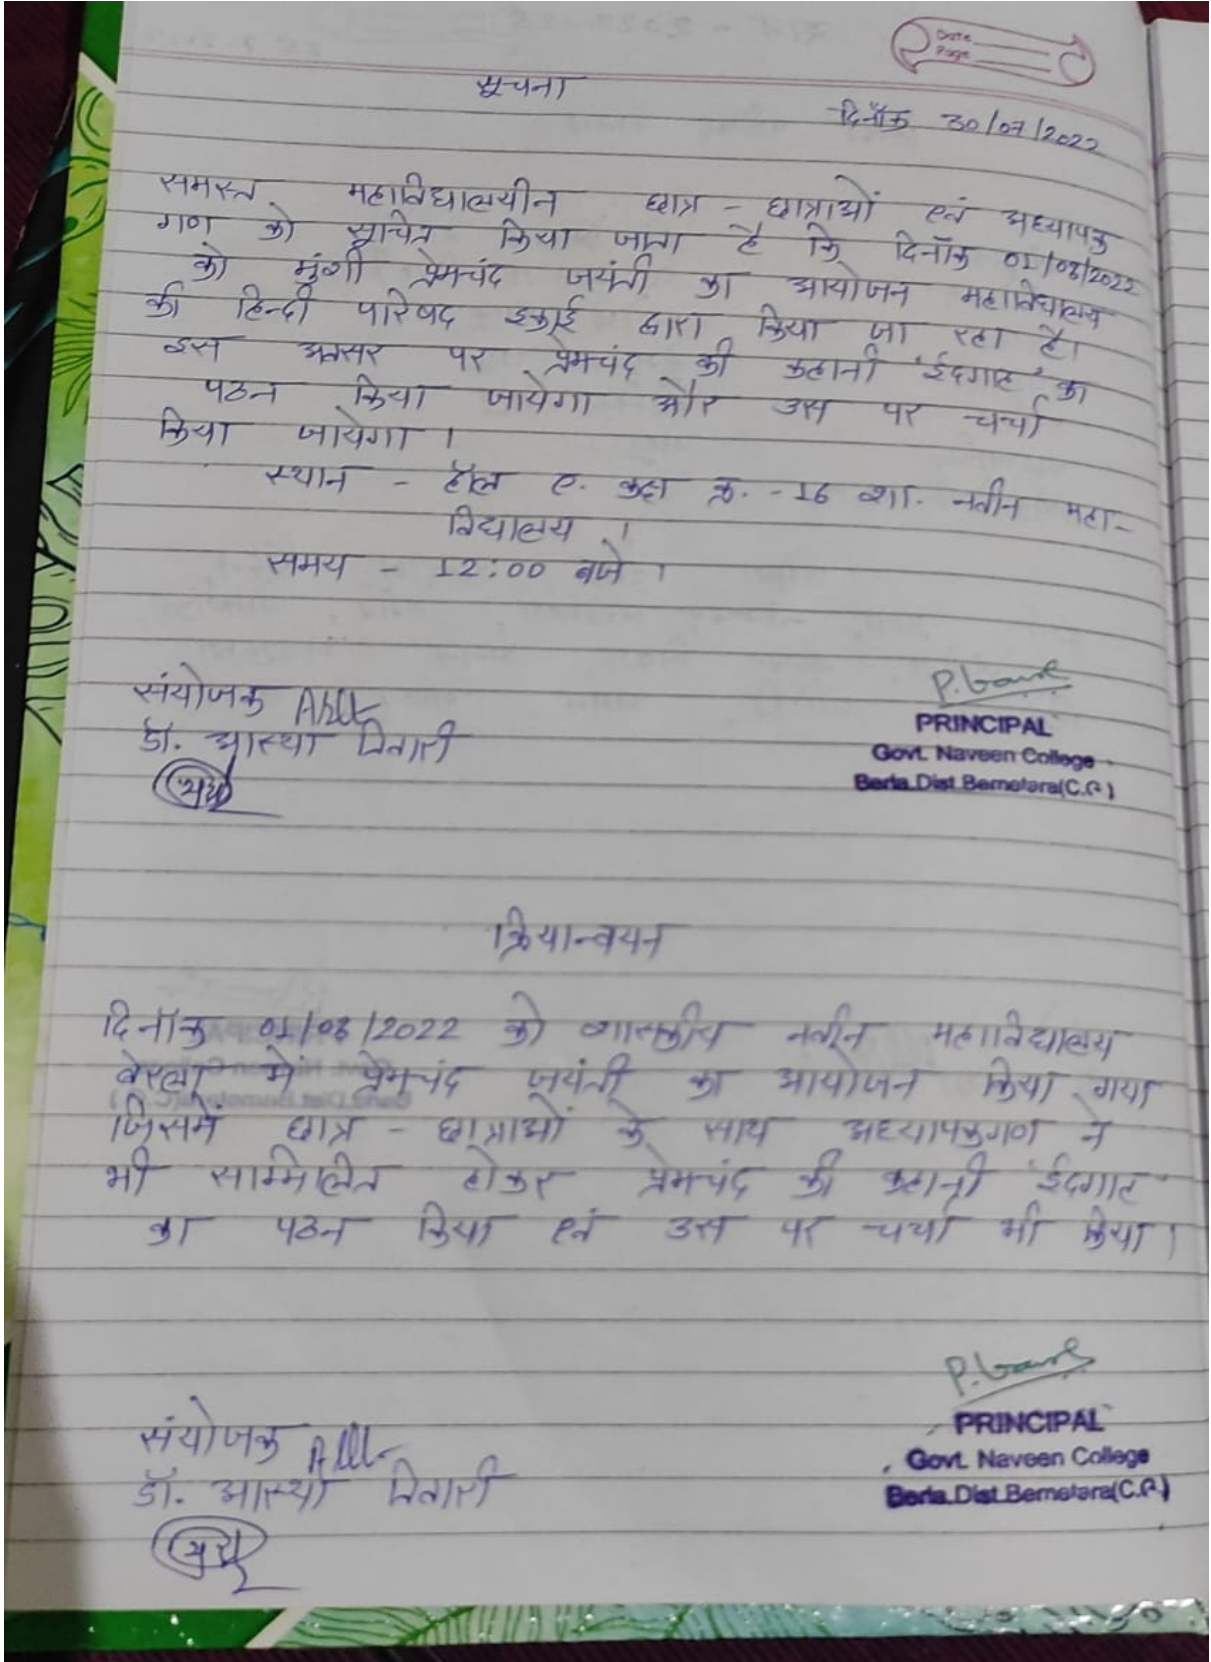 Date
Page
सूचना
दिनाँक 30/07/2022
समस्त महाविद्यालयीन छात्र - छात्राओं एवं अध्यापक
गण को सूचित किया जाता है कि दिनाँक 01/08/2022
को मुंशी प्रेमचंद जयंती का आयोजन महाविद्यालय
की हिन्दी परिषद इकाई द्वारा किया जा रहा है।
इस अवसर पर प्रेमचंद की कहानी 'ईदगाह' का
पठन किया जायेगा और उस पर चर्चा
किया जायेगा ।
स्थान - हॉल ए. कक्ष क्र. - 16 शा. नवीन महा-
विद्यालय ।
समय - 12:00 बजे ।
संयोजक
डॉ. आस्था तिवारी
PRINCIPAL
Govt. Naveen College
Berla.Dist.Bemetara(C.G.)
क्रियान्वयन
दिनाँक 01/08/2022 को शासकीय नवीन महाविद्यालय
बेरला में प्रेमचंद जयंती का आयोजन किया गया
जिसमें छात्र - छात्राओं के साथ अध्यापकगण ने
भी सम्मिलित होकर प्रेमचंद की कहानी 'ईदगाह'
का पठन किया एवं उस पर चर्चा भी किया ।
संयोजक
डॉ. आस्था तिवारी
PRINCIPAL
Govt. Naveen College
Berla.Dist.Bemetara(C.G.)